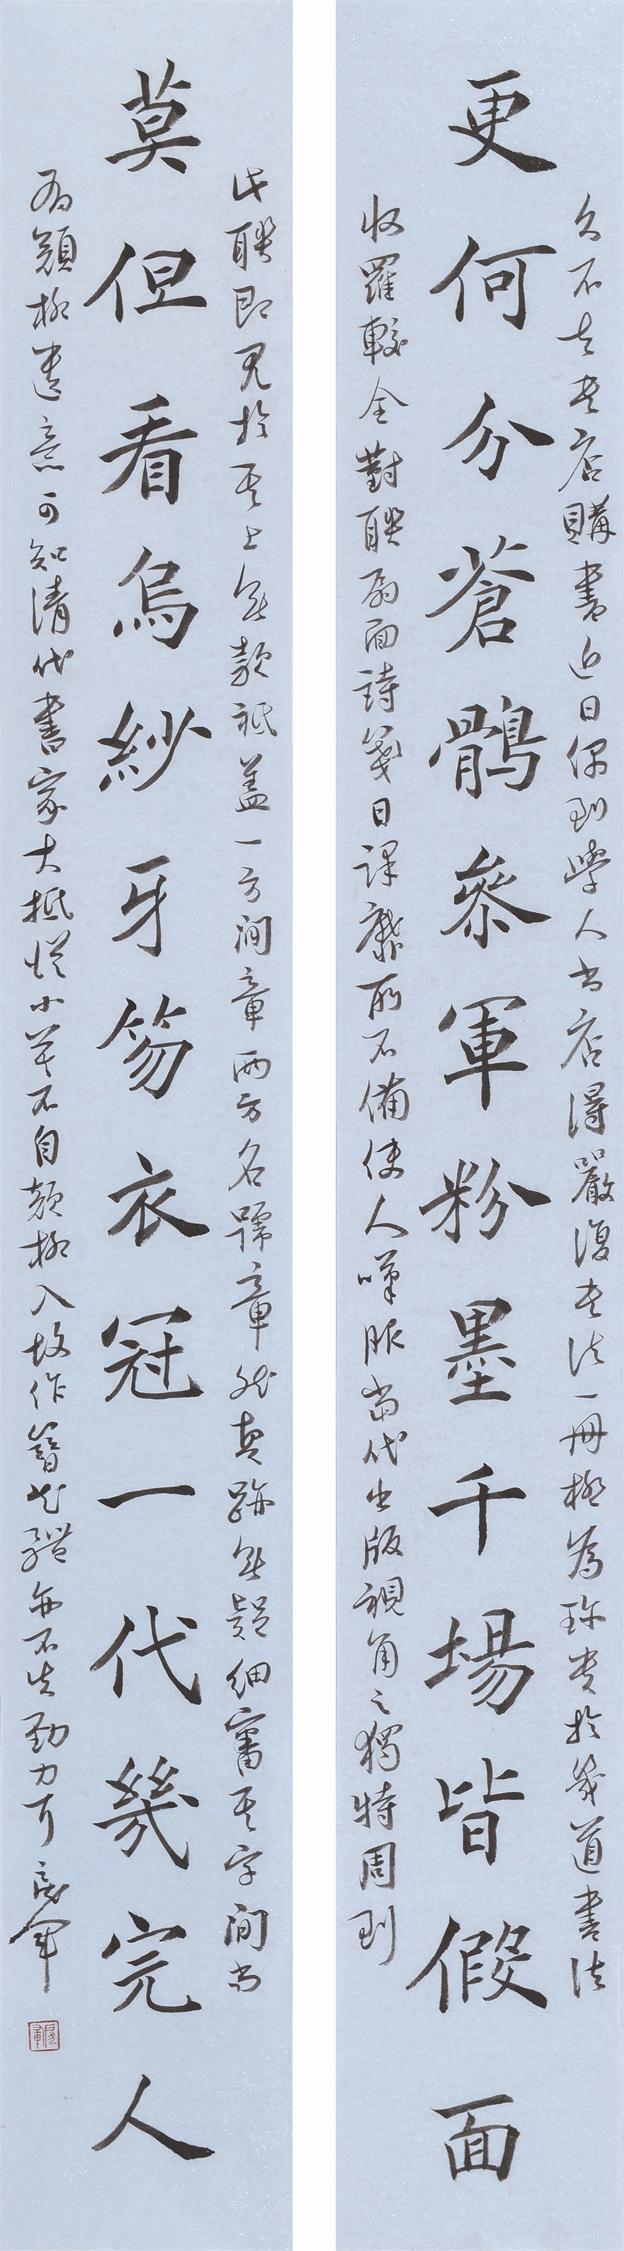 久不去書店購書近日偶到學人書店得嚴復書法一冊極爲珍貴於幾道書法
更何分蒼鶻參軍粉墨千場皆假面
收羅較全對聯扇面詩箋日課靡所不備使人嘆服當代出版視角之獨特周到
此聯即見於其上無款祇蓋一方閒章兩方名號章然真跡無疑細審其字間尚
莫但看烏紗牙笏衣冠一代幾完人
有顏柳遺意可知清代書家大抵從小莫不自顏柳入故作簪花體亦不失勁力耳